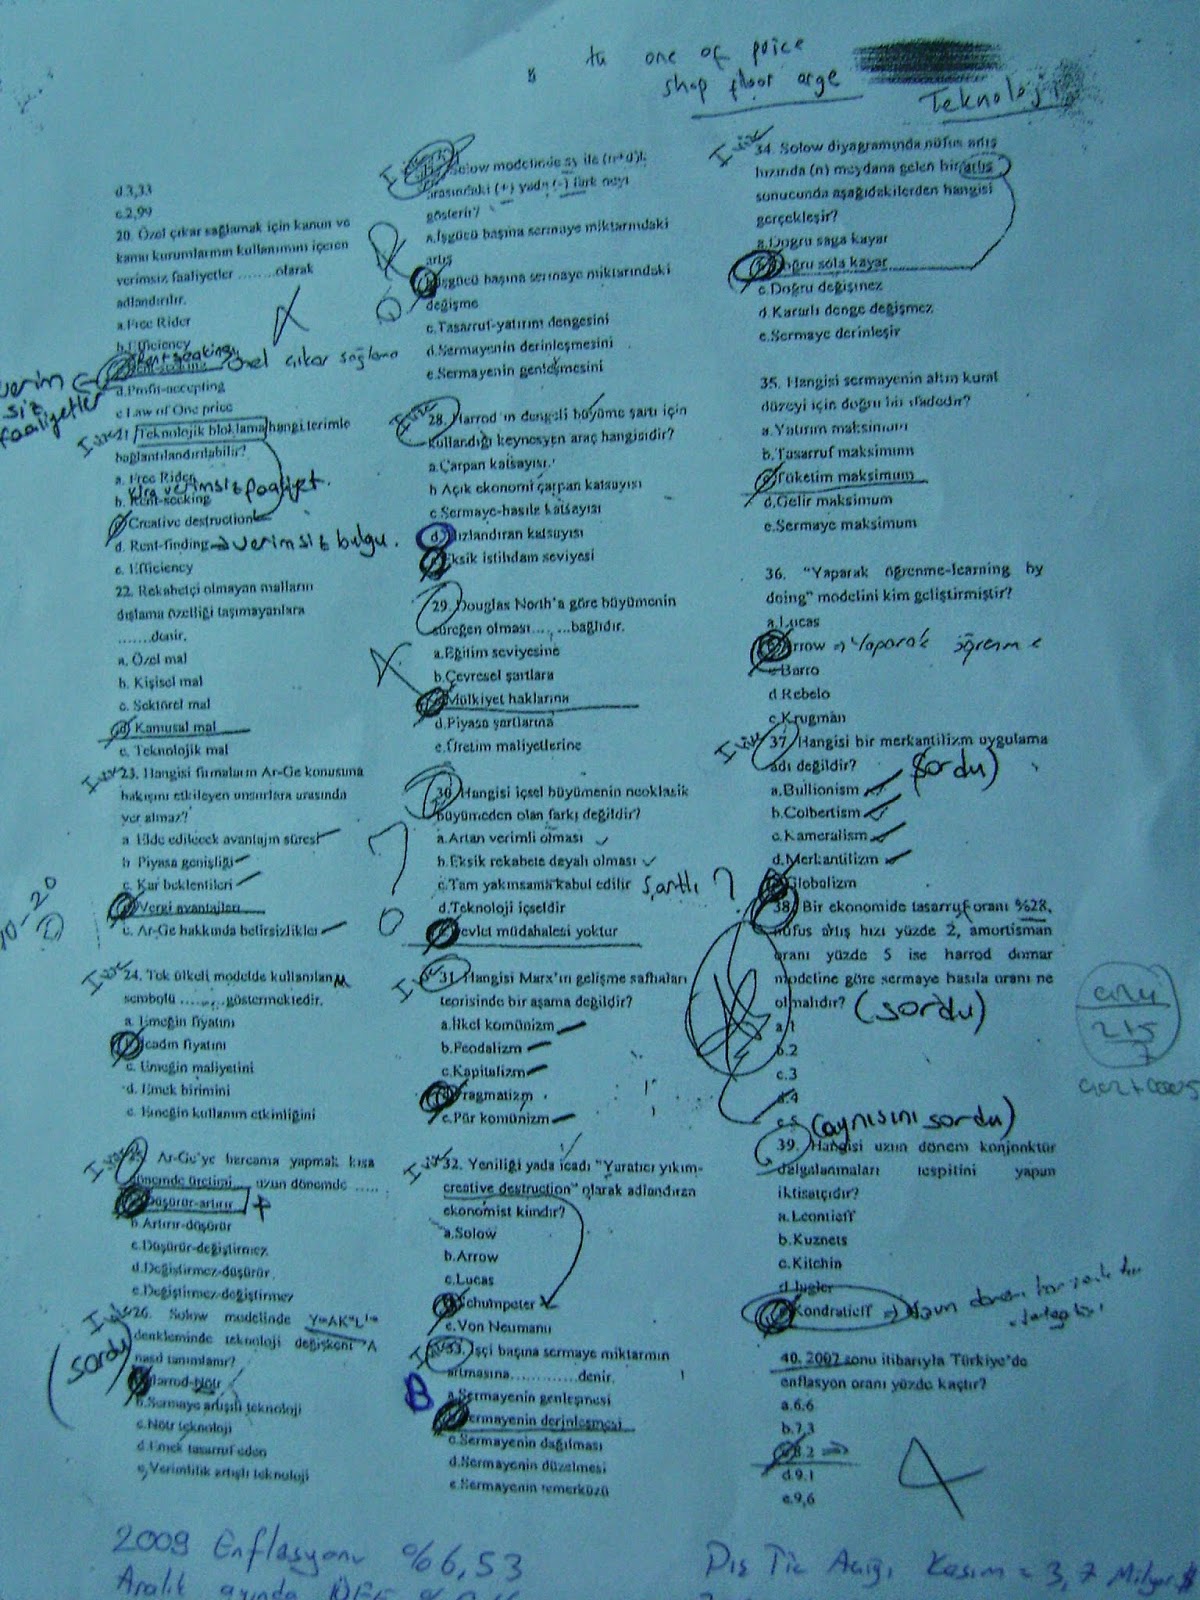 tu one of price
shop floor arge
Teknoloji
d.3,33
e.2,99
20. Özel çıkar sağlamak için kanun ve
kamu kurumlarının kullanımını içeren
verimsiz faaliyetler ........olarak
adlandırılır.
a.Free Rider
b.Efficiency
Rent-seeking özel çıkar sağlama
verim
siz
faaliyetler
d.Profit-accepting
e.Law of One price
21. Teknolojik bloklama hangi terimle
bağlantılandırılabilir?
a. Free Rider
verimsiz faaliyet.
b. Rent-seeking
c. Creative destruction
d. Rent-finding → verimsiz bulgu.
e. Efficiency
22. Rekabetçi olmayan malların
dışlama özelliği taşımayanlara
.......denir.
a. Özel mal
b. Kişisel mal
c. Sektörel mal
d. Kamusal mal
e. Teknolojik mal
23. Hangisi firmaların Ar-Ge konusuna
bakışını etkileyen unsurlara arasında
yer almaz?
a. Elde edilecek avantajın süresi
b. Piyasa genişliği
c. Kar beklentileri
d. Vergi avantajları
e. Ar-Ge hakkında belirsizlikler
10-20
24. Tek ülkeli modelde kullanılan M
sembolü ........göstermektedir.
a. Emeğin fiyatını
b. İcadın fiyatını
c. Emeğin maliyetini
d. Emek birimini
e. Emeğin kullanım etkinliğini
25. Ar-Ge'ye harcama yapmak kısa
dönemde üretimi.... uzun dönemde .....
a.Düşürür-artırır
b.Artırır-düşürür
c.Düşürür-değiştirmez
d.Değiştirmez-düşürür
e.Değiştirmez-değiştirmez
26. Solow modelinde
denkleminde teknoloji değişkeni A
nasıl tanımlanır?
(sordu)
a.Harrod-Nötr
b.Sermaye artışılı teknoloji
c.Nötr teknoloji
d.Emek tasarruf eden
e.Verimlilik artışlı teknoloji
2009 Enflasyonu %6,53
Aralık ayında
Solow modelinde sy ile (n+d)k
arasındaki (+) yada (-) fark neyi
gösterir?
a.İşgücü başına sermaye miktarındaki
artış
b.İşgücü başına sermaye miktarındaki
değişme
c.Tasarruf-yatırım dengesini
d.Sermayenin derinleşmesini
e.Sermayenin genleşmesini
28. Harrod'ın dengeli büyüme şartı için
kullandığı keynesyen araç hangisidir?
a.Çarpan katsayısı
b.Açık ekonomi çarpan katsayısı
c.Sermaye-hasıla katsayısı
d.Hızlandıran katsayısı
e.Eksik istihdam seviyesi
29. Douglas North'a göre büyümenin
süreğen olması.... ...bağlıdır.
a.Eğitim seviyesine
b.Çevresel şartlara
c.Mülkiyet haklarına
d.Piyasa şartlarına
e.Üretim maliyetlerine
30. Hangisi içsel büyümenin neoklasik
büyümeden olan farkı değildir?
a.Artan verimli olması
b.Eksik rekabete dayalı olması
c.Tam yakınsama kabul edilir Şartlı ?
d.Teknoloji içseldir
e.Devlet müdahalesi yoktur
31. Hangisi Marx'ın gelişme safhaları
teorisinde bir aşama değildir?
a.İlkel komünizm
b.Feodalizm
c.Kapitalizm
d.Pragmatizm
e.Pür komünizm
32. Yeniliği yada icadı "Yaratıcı yıkım-
creative destruction" olarak adlandıran
ekonomist kimdir?
a.Solow
b.Arrow
c.Lucas
d.Schumpeter
e.Von Neumann
33. İşçi başına sermaye miktarının
artmasına............denir.
B
a.Sermayenin genleşmesi
b.Sermayenin derinleşmesi
c.Sermayenin dağılması
d.Sermayenin düzelmesi
e.Sermayenin temerküzü
34. Solow diyagramında nüfus artış
hızında (n) meydana gelen bir artış
sonucunda aşağıdakilerden hangisi
gerçekleşir?
a.Doğru sağa kayar
b.Doğru sola kayar
c.Doğru değişmez
d.Kararlı denge değişmez
e.Sermaye derinleşir
35. Hangisi sermayenin altın kural
düzeyi için doğru bir ifadedir?
a.Yatırım maksimum
b.Tasarruf maksimum
c.Tüketim maksimum
d.Gelir maksimum
e.Sermaye maksimum
36. "Yaparak öğrenme-learning by
doing" modelini kim geliştirmiştir?
a.Lucas
b.Arrow ⇒ Yaparak öğrenme
c.Barro
d.Rebelo
e.Krugman
37. Hangisi bir merkantilizm uygulama
adı değildir? (sordu)
a.Bullionism
b.Colbertism
c.Kameralism
d.Merkantilizm
e.Globalizm
38. Bir ekonomide tasarruf oranı %28,
nüfus artış hızı yüzde 2, amortisman
oranı yüzde 5 ise harrod domar
modeline göre sermaye hasıla oranı ne
olmalıdır? (sordu)
a.1
b.2
c.3
d.4
e.5 (aynısını sordu)
2+5
7
39. Hangisi uzun dönem konjonktür
dalgalanmaları tespitini yapan
iktisatçıdır?
a.Leontieff
b.Kuznets
c.Kitchin
d.Juglar
e.Kondratieff ⇒ Uzun dönem
40. 2007 sonu itibarıyla Türkiye'de
enflasyon oranı yüzde kaçtır?
a.6.6
b.7,3
c.8.2
d.9.1
e.9,6
Dış Tic Açığı Kasım = 3,7 Milyar $